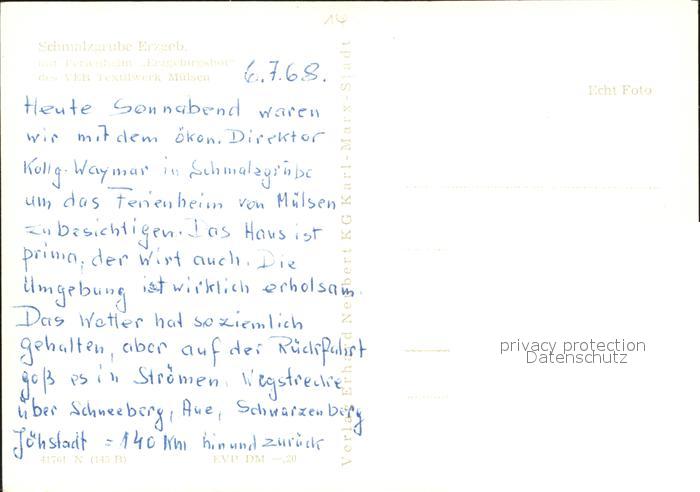 Schmalzgrube Erzgeb.
mit Ferienheim „Erzgebirgshof“
des VEB Textilwerk Mülsen
6.7.68.
Heute Sonnabend waren
wir mit dem ökon. Direktor
Kollg. Waymar in Schmalzgrube
um das Ferienheim von Mülsen
zu besichtigen. Das Haus ist
prima, der Wirt auch. Die
Umgebung ist wirklich erholsam.
Das Wetter hat so ziemlich
gehalten, aber auf der Rückfahrt
goß es in Strömen. Wegstrecke
über Schneeberg, Aue, Schwarzenberg
Jöhstadt = 140 Km hin und zurück
41761 N (145 B) EVP DM —,20
Verlag Erhard Neubert KG Karl-Marx-Stadt
Echt Foto
privacy protection
Datenschutz